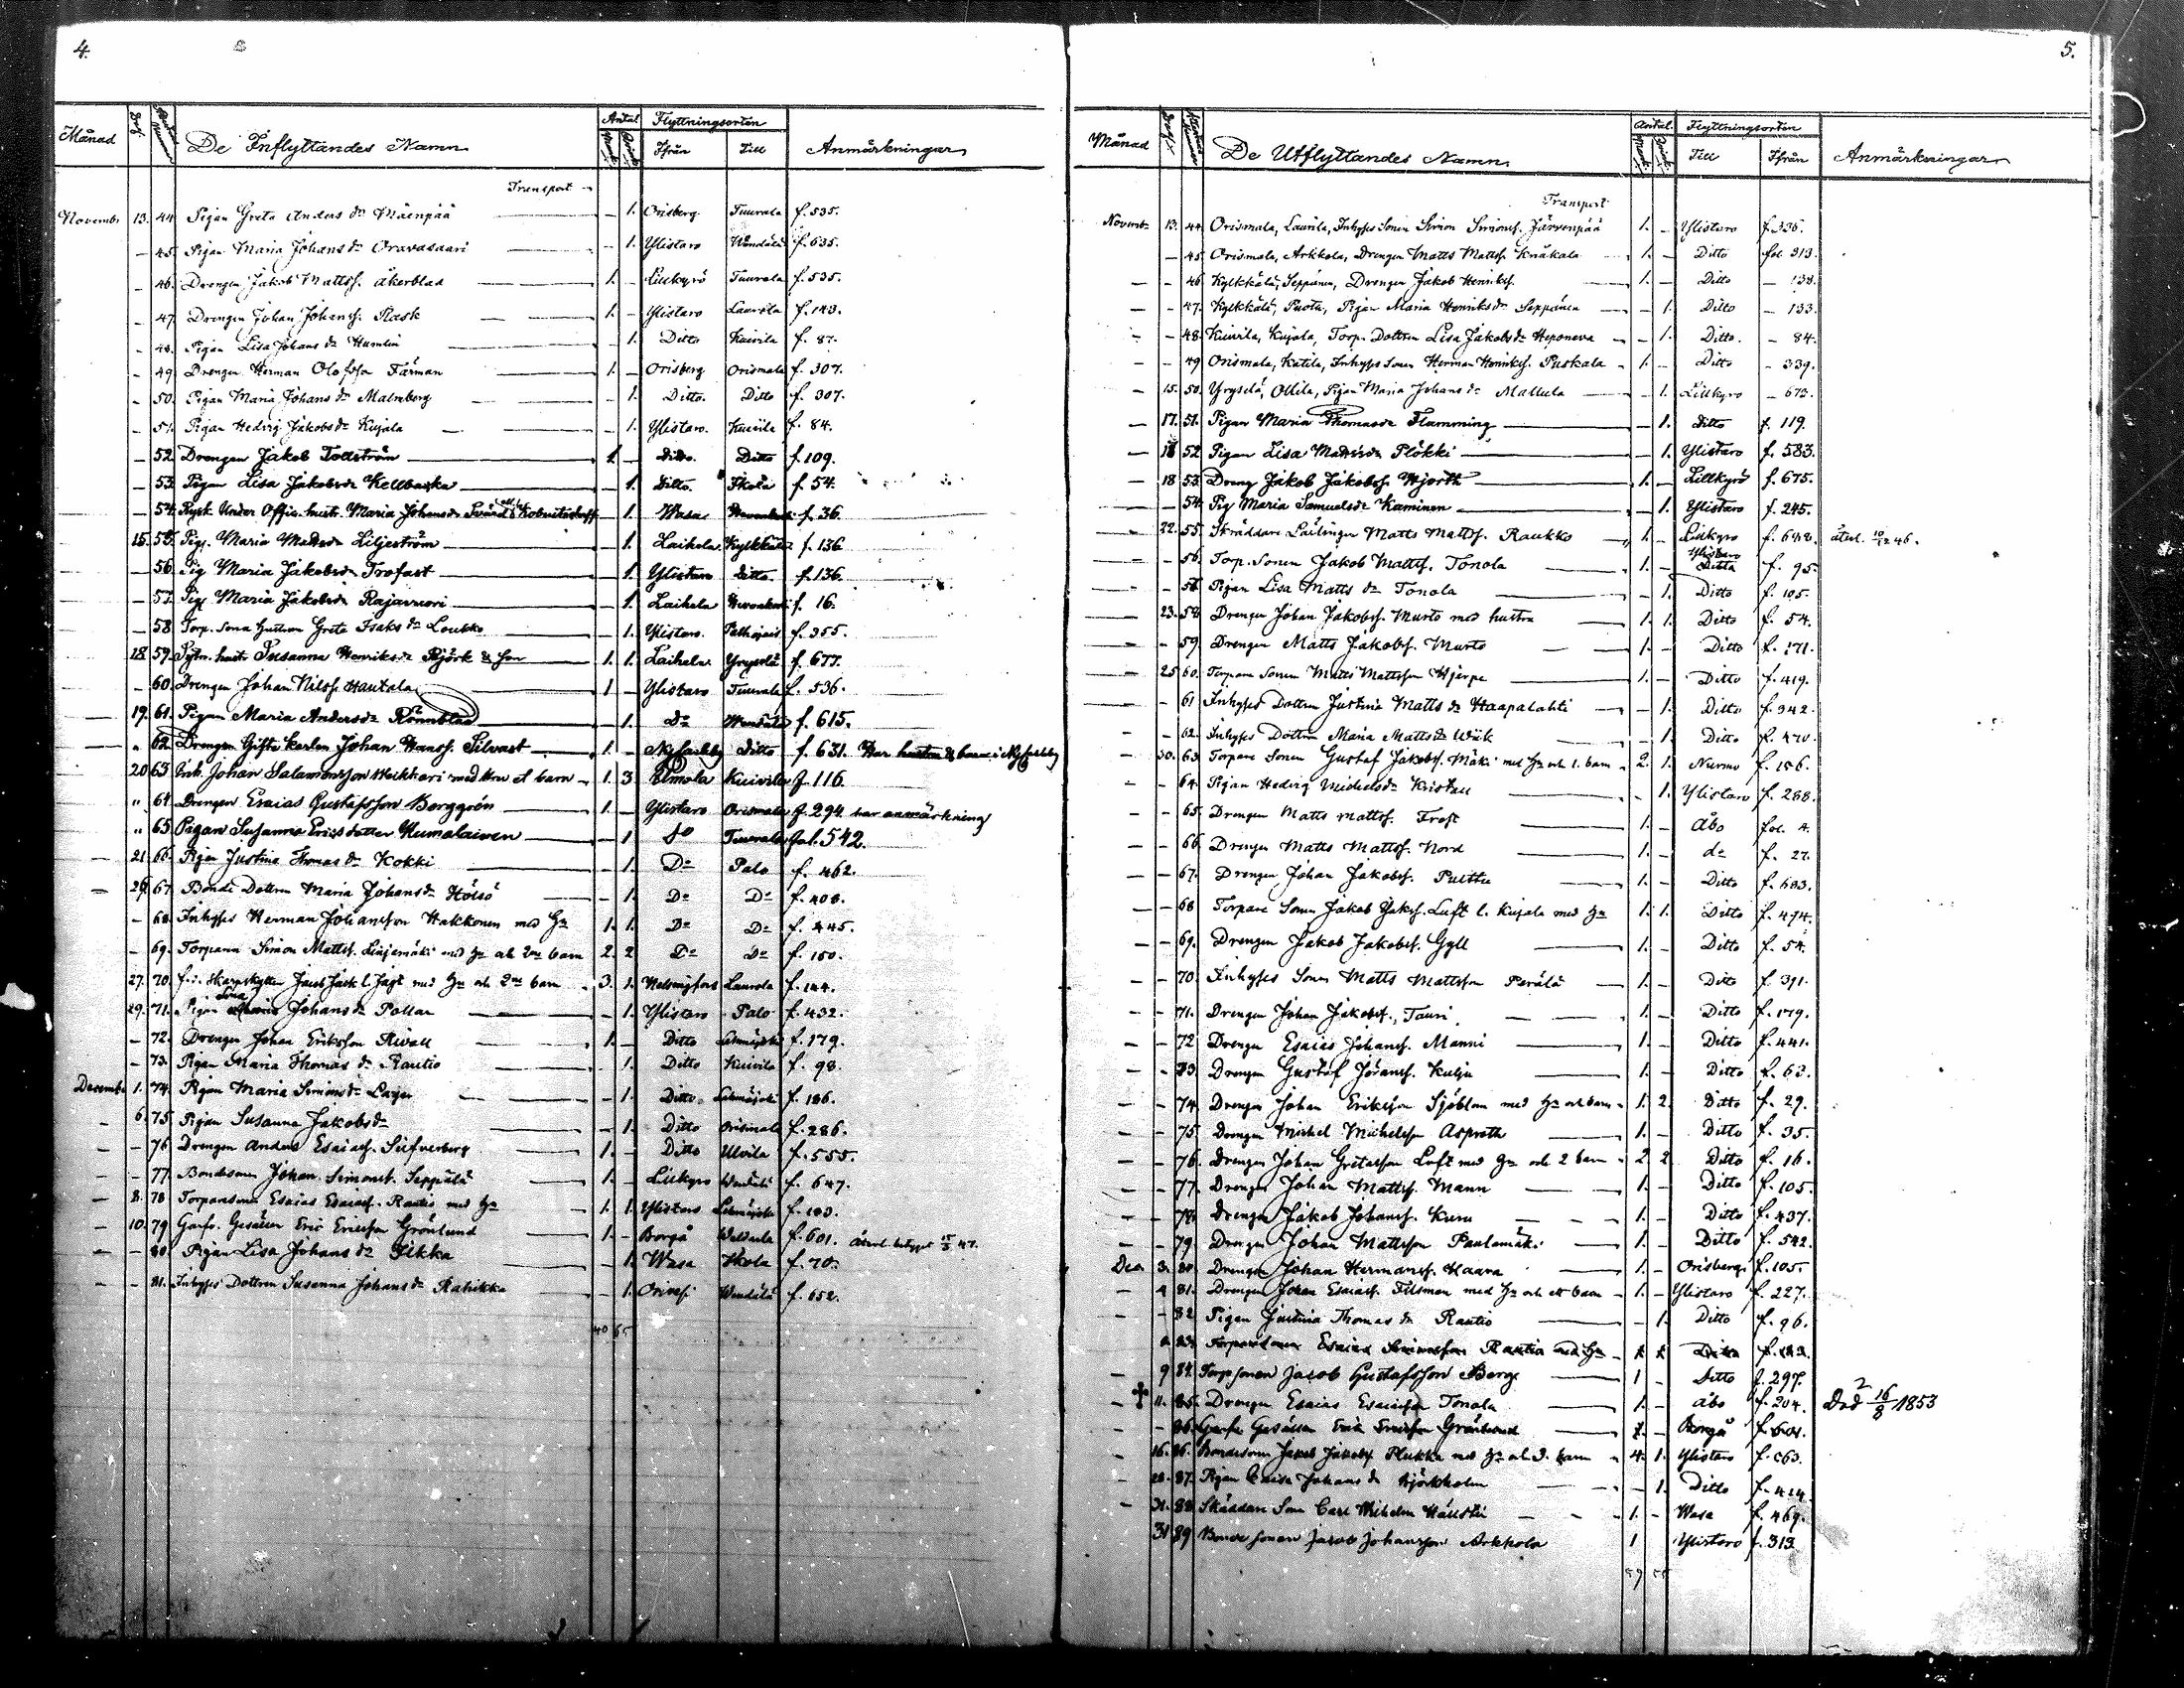 4.
Månad Dag De Inflyttandes Namn Antal Mank. Qvink. Flyttningsorten Ifrån Till Anmärkningar
Transport
Novembr 13. 44. Pigan Greta Anders dr Mäenpää — 1. Orisberg Tuurala f. 535.
— 45. Pigan Maria Johans dr Oravasaari — 1. Ylistaro Wendälä f. 635.
— 46. Drengen Jakob Mattss. Åkerblad 1. — Lillkyrö Tuurala f. 535.
— 47. Drengen Johan Johanss. Rask 1. — Ylistaro Laurola f. 143.
— 48. Pigan Lisa Johans dr Humlin — 1. Ditto Kuivila f. 87.
— 49. Drengen Herman Olofsson Färman 1. — Orisberg Orismala f. 307.
— 50. Pigan Maria Johans dr Malmberg — 1. Ditto. Ditto f. 307.
— 51. Pigan Hedvig Jakobs dr Kujala — 1. Ylistaro. Kuivila f. 84.
— 52. Drengen Jakob Tollström 1. — Ditto. Ditto f. 109.
— 53. Pigan Lisa Jakobsdr — 1. Ditto. Ikola f. 54.
— 54. Rysk Under Offic. hustr. Maria Johansdr — 1. Wasa f. 36.
15. 55. Pig. Maria Mattsdr Liljeström — 1. Laihela Kylkkälä f. 136
— 56. Pig Maria Jakobsdr Trofast — 1. Ylistaro Ditto. f. 136.
— 57. Pig Maria Jakobsdr Rajavuori — 1. Laihela f. 16.
— 58. Torp. Sona hustrun Greta Isaks dr Loukko — 1. Ylistaro. f. 355.
18. 59. Sytn. hustr Susanna Henriksdr Björk & son 1. 1. Laihela Yryselä f. 677.
— 60. Drengen Johan Nilss. Hautala 1 — Ylistaro Tuurala f. 536.
— 19. 61. Pigan Maria Andersdr Rönnblad — 1. Do Wendälä f. 615.
— " 62. Drengen Gifte karlen Johan Hanss. Silvast 1. — Nykarleby Ditto f. 631. Har hustru & barn i Nykarleby
20 63 Inh. Johan Salamonsson Weikkari med Hru et barn 1. 3 Ilmola Kuivila f. 116.
" 64. Drengen Esaias Gustafsson Berggrén 1. — Ylistaro Orismala f. 294. har anmärkning
" 65 Pigan Susanna Ericsdotter Humalainen — 1 Do Tuurala fol. 542.
— 21. 66. Pigan Justina Thomas dr Kokki — 1. Do Palo f. 462.
— 26. 67. Bonde Dottren Maria Johans dr Hölsö — 1. Do Do f. 408.
— 68. Inhyses Herman Johansson Hakkonen med Hu 1. 1. Do Do f. 445.
— 69. Torparen Simon Mattss. Linjamäki med Hu och 2ne barn 2. 2 Do Do f. 150.
27. 70. f.d. Skarpskytten Jacob Jack l. Jägt med Hu och 2ne barn 3. 1. Helsingfors Laurola f. 144.
29. 71. Pigan Lisa Johans dr Pollar — 1. Ylistaro Palo f. 432.
— 72. Drengen Johan Eriksson Rivall 1. — Ditto Lehmäjoki f. 179.
— 73. Pigan Maria Thomas dr Rautio — 1. Ditto Kuivila f. 98.
December 1. 74. Pigan Maria Simons dr — 1. Ditto. Lehmäjoki f. 186.
— 6. 75. Pigan Susanna Jakobs dr — 1. Ditto Orismala f. 286.
— — 76. Drengen Anders Esaiass. Silfverberg 1. — Ditto Ulvila f. 555.
— — 77. Bondesonen Johan Simonss. Seppälä 1. — Lillkyro Wendälä f. 647.
— 8. 78. Torparesonen Esaias Esaiass. Rautio med Hu 1. 1. Ylistaro Lehmäjoki f. 193.
— 10. 79. Garfv. Gesällen Eric Ericsson Grönlund 1. — Borgå f. 601. Återl. betyget 15/3 47.
— — 80. Pigan Lisa Johans dr Ilkka — 1. Wasa Ikola f. 70.
— — 81. Inhyses Dottren Susanna Johans dr Rahikka — 1. Orivesi Wendälä f. 652.
40 65
5.
Månad Dag De Utflyttandes Namn Antal. Mank. Qvink. Flyttningsorten Till Ifrån Anmärkningar
Transport
Novemb. 13. 44. Orismala, Laurila, Inhyses Sonen Simon Simonss. Järvenpää 1. — Ylistaro f. 336.
— 45. Orismala, Arkkola, Drengen Matts Mattss. Knåkala 1. — Ditto fol. 313.
— — 46. Kylkkälä, Seppänen, Drengen Jakob Henrikss. 1. — Ditto — 138.
— — 47. Kylkkälä, Puota, Pigan Maria Henriks dr Seppänen — 1. Ditto — 133.
— — 48. Kuivila, Kujala, Torp. Dottren Lisa Jakobs dr Heponeva — 1. Ditto. — 84.
— — 49. Orismala, Katila, Inhyses Sonen Herman Henrikss. Puskala 1. — Ditto — 339.
— 15. 50. Yryselä, Ollila, Pigan Maria Johans dr Mallula — 1. Lillkyro — 673.
— 17. 51. Pigan Maria Thomasdr Flamming — 1. Ditto f. 119.
— 18 52. Pigan Lisa Mattsdr Plökki — 1. Ylistaro f. 583.
— 18 53. Dreng Jakob Jakobss. Hjorth 1. — Lillkyrö f. 675.
— — 54. Pig Maria Samuelsdr Kaminen — 1. Ylistaro f. 245.
— 22. 55. Skräddare Lärlingen Matts Mattss. Raukko 1. — Lillkyro f. 648. återl. 10/12 46.
— — 56. Torp. Sonen Jakob Mattss. Tonola 1. — Ylistaro Ditto f. 95.
— — 57. Pigan Lisa Matts dr Tonola — 1. Ditto f. 105.
— 23. 58. Drengen Johan Jakobss. Murto med hustru 1. 1. Ditto f. 54.
— — 59. Drengen Matts Jakobss. Murto 1. — Ditto f. 171.
— 25 60. Torpare Sonen Matts Mattsson Hjerpe 1. — Ditto f. 419.
— — 61. Inhyses Dottren Justina Matts dr Haapalahti — 1. Ditto f. 342.
— — 62. Inhyses Dottren Maria Matts dr Wiik — 1. Ditto f. 470.
— 30. 63. Torpare Sonen Gustaf Jakobss. Mäki med Hu och 1. barn 2. 1. Nurmo f. 156.
— — 64. Pigan Hedvig Michels dr Kristen — 1. Ylistaro f. 288.
— — 65. Drengen Matts Mattss. Frost 1. — Åbo fol. 4.
— — 66. Drengen Matts Mattss. Nord 1. — do f. 27.
— — 67. Drengen Johan Jakobss. Pulttu 1. — Ditto f. 683.
— — 68 Torpare Sonen Jakob Jakss. Luft l. Kujala med Hu 1. 1. Ditto f. 474.
— — 69. Drengen Jakob Jakobss. Gyll 1. — Ditto f. 54.
— — 70. Inhyses Sonen Matts Mattsson Perälä 1. — Ditto f. 391.
— — 71. Drengen Johan Jakobss. Tauri 1. — Ditto f. 179.
— — 72. Drengen Esaias Johanss. Manni 1. — Ditto f. 441.
— — 73. Drengen Gustaf Göranss. Kulju 1. — Ditto f. 63.
— — 74. Drengen Johan Eriksson Sjöblom med Hu och barn 1. 2. Ditto f. 29.
— — 75. Drengen Michel Michelsson Asproth 1. — Ditto f. 35.
— — 76. Drengen Johan Gretasson Luft med Hu och 2 barn 2. 2 Ditto f. 16.
— — 77. Drengen Johan Mattss. Mann 1. — Ditto f. 105.
— — 78. Drengen Jakob Johanss. Kuru 1. — Ditto f. 437.
— — 79. Drengen Johan Mattsson Paulamäki 1. — Ditto f. 542.
Dec. 3. 80. Drengen Johan Hermanss. Haara 1. — Orisberg f. 105.
— 4 81. Drengen Johan Esaiass. Tilsman med Hu och ett barn 1. — Ylistaro f. 227.
— 82. Pigan Justina Thomas dr Rautio — 1. Ditto f. 96.
83. Torparesonen Esaias Rautio med Hu Ditto f. 193.
— 9 84. Torp sonen Jacob Gustafsson Berg 1 — Ditto f. 297.
— 11. 85. Drengen Esaias Esaiasson Tonola 1. — Åbo f. 204. Död 2 16/8 1853
— 86. Garfv. Gesällen Eric Ericsson Grönlund 1. — Borgå f. 601.
— 16. 86. Bondesonen Jakob Jakobss. Plukka med Hu och 3. barn 4. 1. Ylistaro
— 87. Pigan Caisa Johans dr Björkholm — 1. Ditto f. 414.
— 31. 88. Skäddare Son Carl Wilhelm Hällsti 1. — Wasa f. 469.
31 89 Bonde sonen Jacob Johansson Arkkola 1 Ylistaro f. 313
59 55